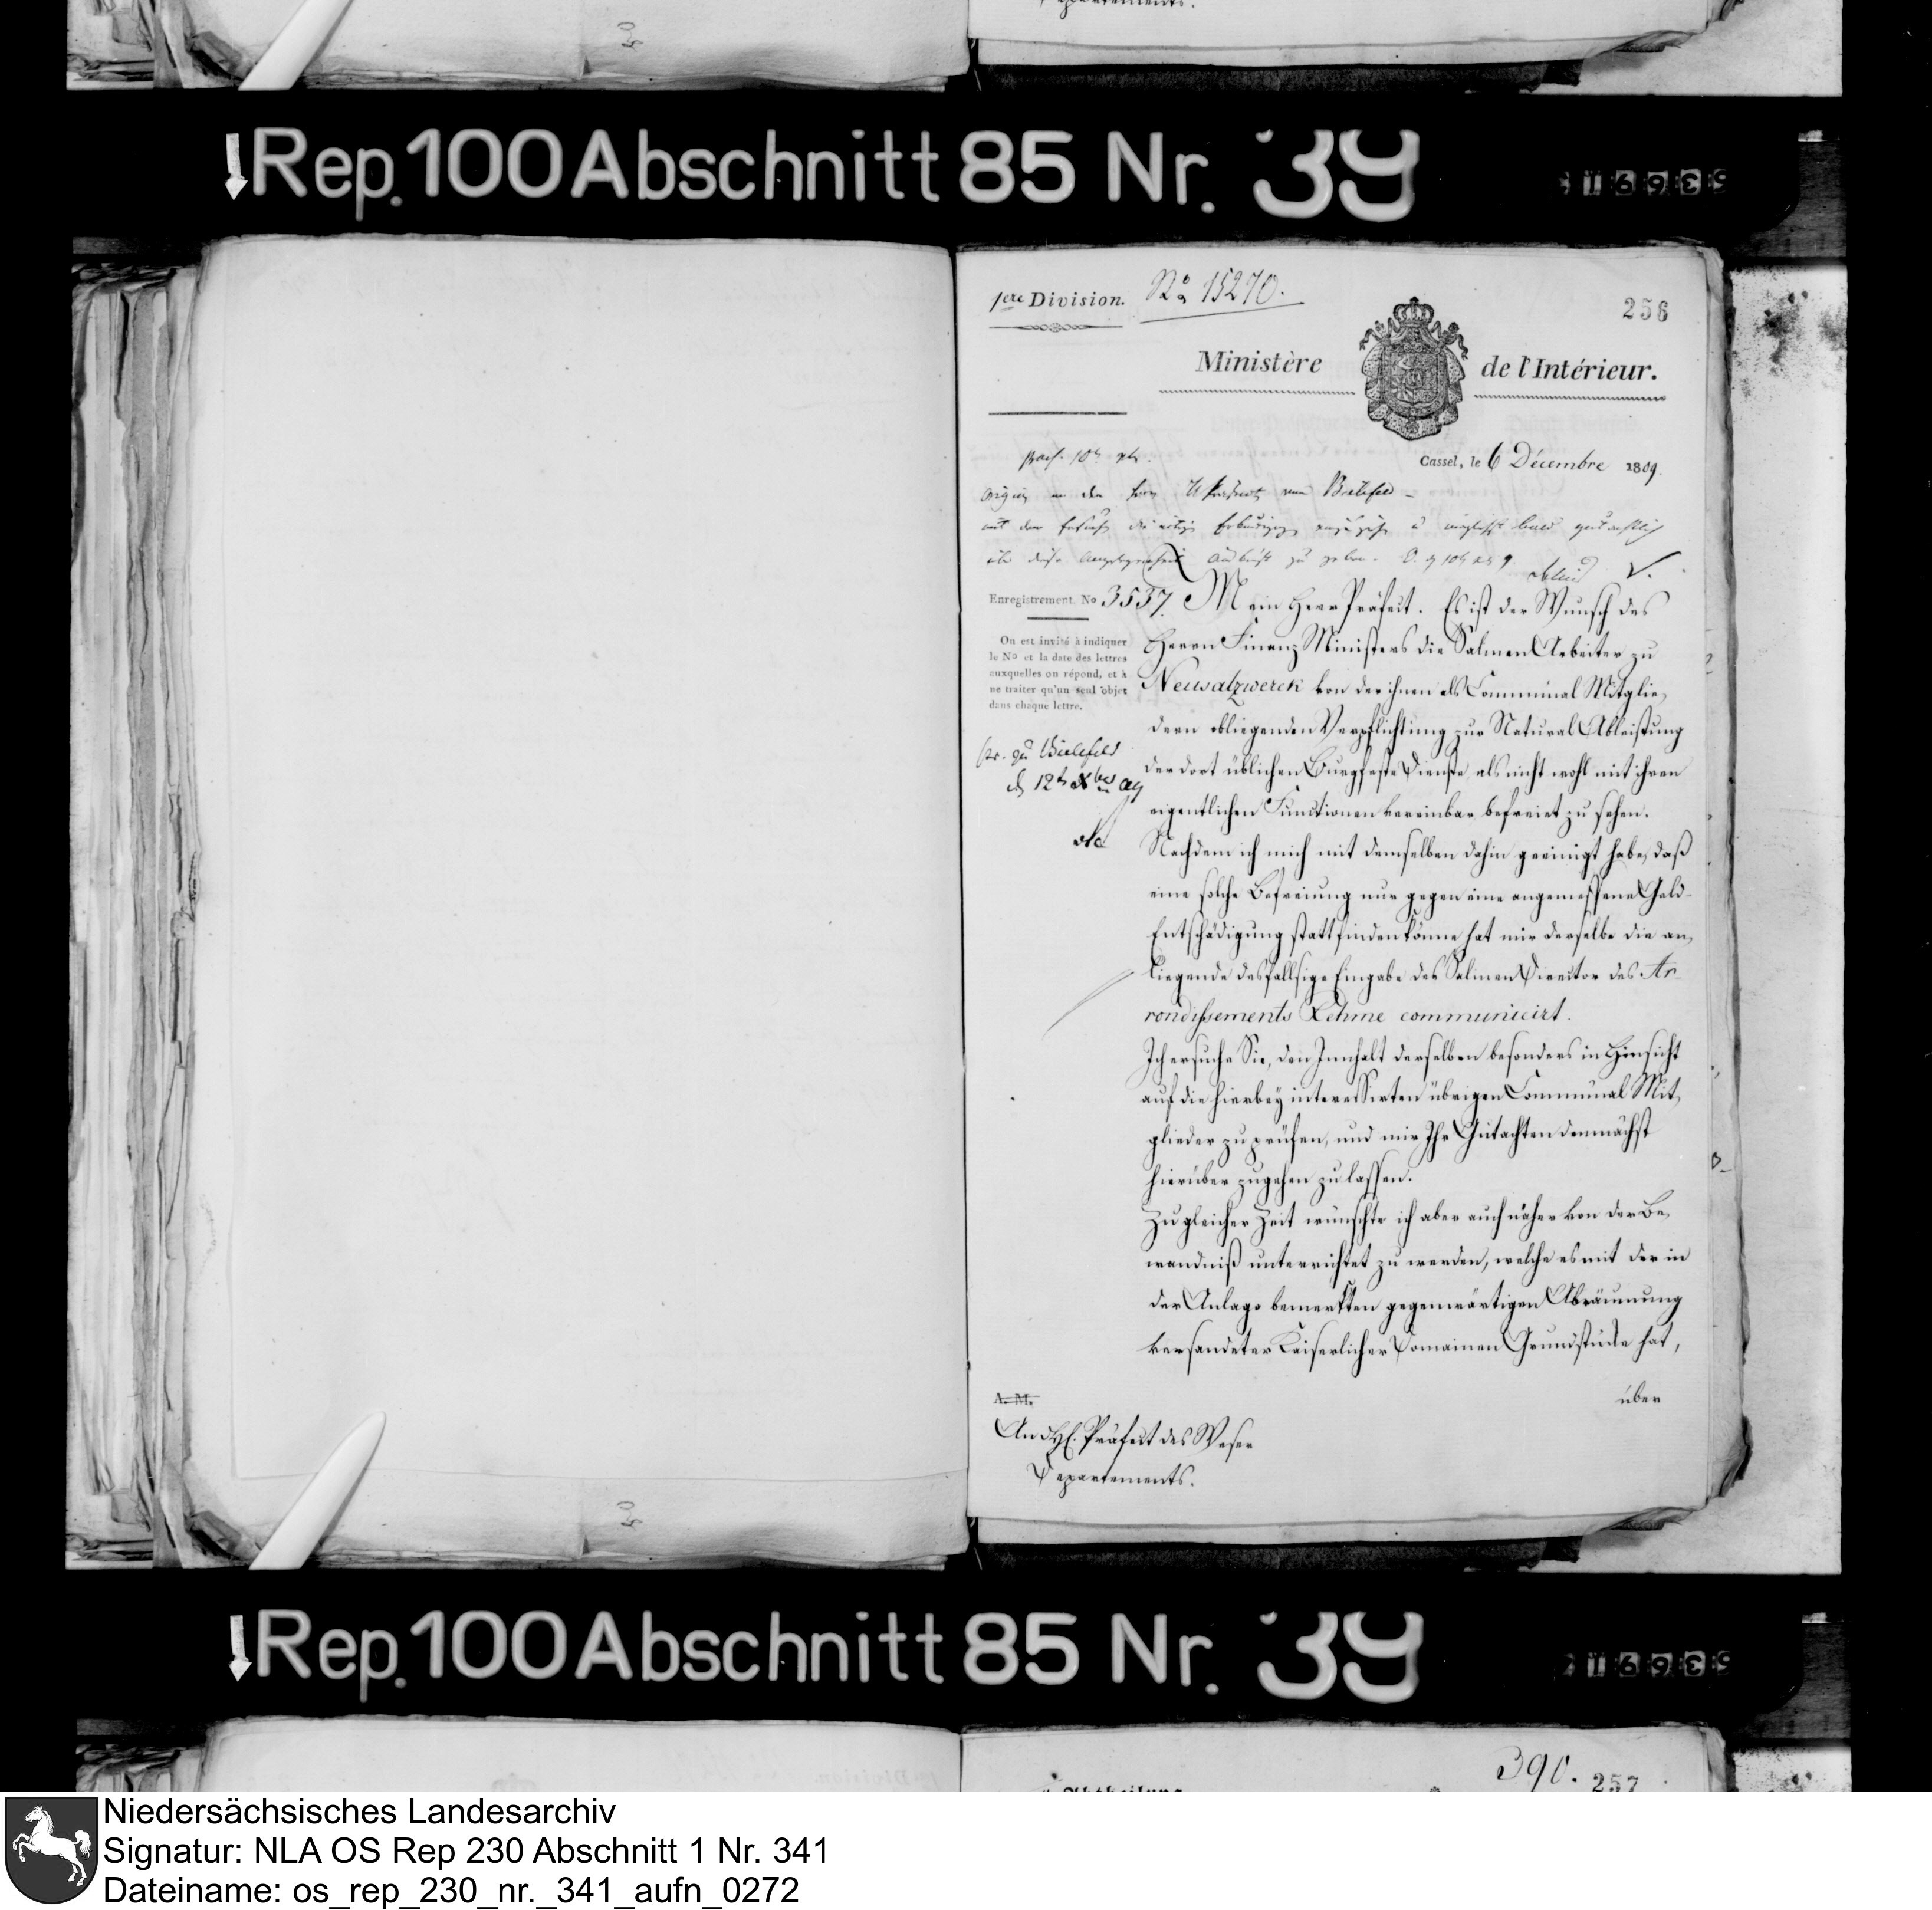 Departements.
Rep. 100 Abschnitt 85 Nr. 39
1ere Division. No 15270.
256
Ministère de l'Intérieur.
Cassel, le 6 Décembre 1809.
an den Herrn UPräfect von Bielefeld
Enregistrement No 3537.
On est invité à indiquer
le No et la date des lettres
auxquelles on répond, et à
ne traiter qu'un seul objet
dans chaque lettre.
pr. zu Bielefeld
d 12t Xbr 09
Mein Herr Präfect. Es ist der Wunsch des
Herrn Finanz Ministers die Salinen Arbeiter zu
Neusalzwerck von der ihnen als Communal Mitglie,
dern obliegenden Verpflichtung zur Natural Ableistung
der dort üblichen Burgfeste Dienste als nicht wohl mit ihren
eigentlichen Functionen vereinbar befreiet zu sehen.
Nachdem ich mich mit demselben dahin geeinigt habe, daß
eine solche Befreiung nur gegen eine angemessene Geld-
Entschädigung stattfinden könne hat mir derselbe die an,
liegende desfallsige Eingabe des Salinen Director des Ar-
rondissements Rehme communicirt.
Ich ersuche Sie, den Innhalt derselben besonders in Hinsicht
auf die hierbey interessirten übrigen Communal Mit,
glieder zu prüfen, und mir Ihr Gutachten demnächst
hierüber zugehen zu lassen.
Zu gleicher Zeit wünschte ich aber auch näher von der Be,
wandniß unterrichtet zu werden, welche es mit der in
der Anlage bemerkten gegenwärtigen Abräumung
versandeter Kaiserlicher Domainen Grundstücke hat,
über
A. M.
An d H. Präfect des Weser
Departements.
Rep. 100 Abschnitt 85 Nr. 39
390. 257
Niedersächsisches Landesarchiv
Signatur: NLA OS Rep 230 Abschnitt 1 Nr. 341
Dateiname: os_rep_230_nr._341_aufn_0272